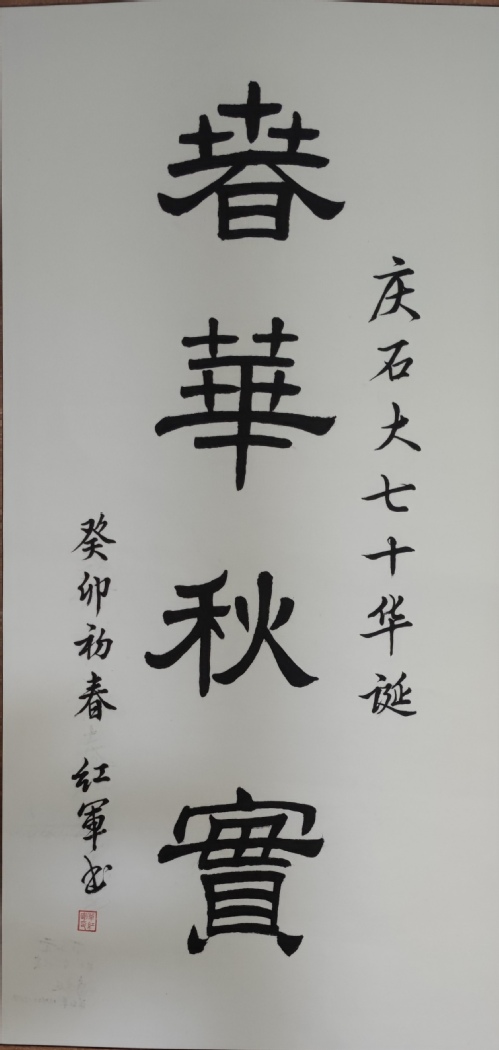 庆石大七十华诞
春華秋實
癸卯初春 红軍书